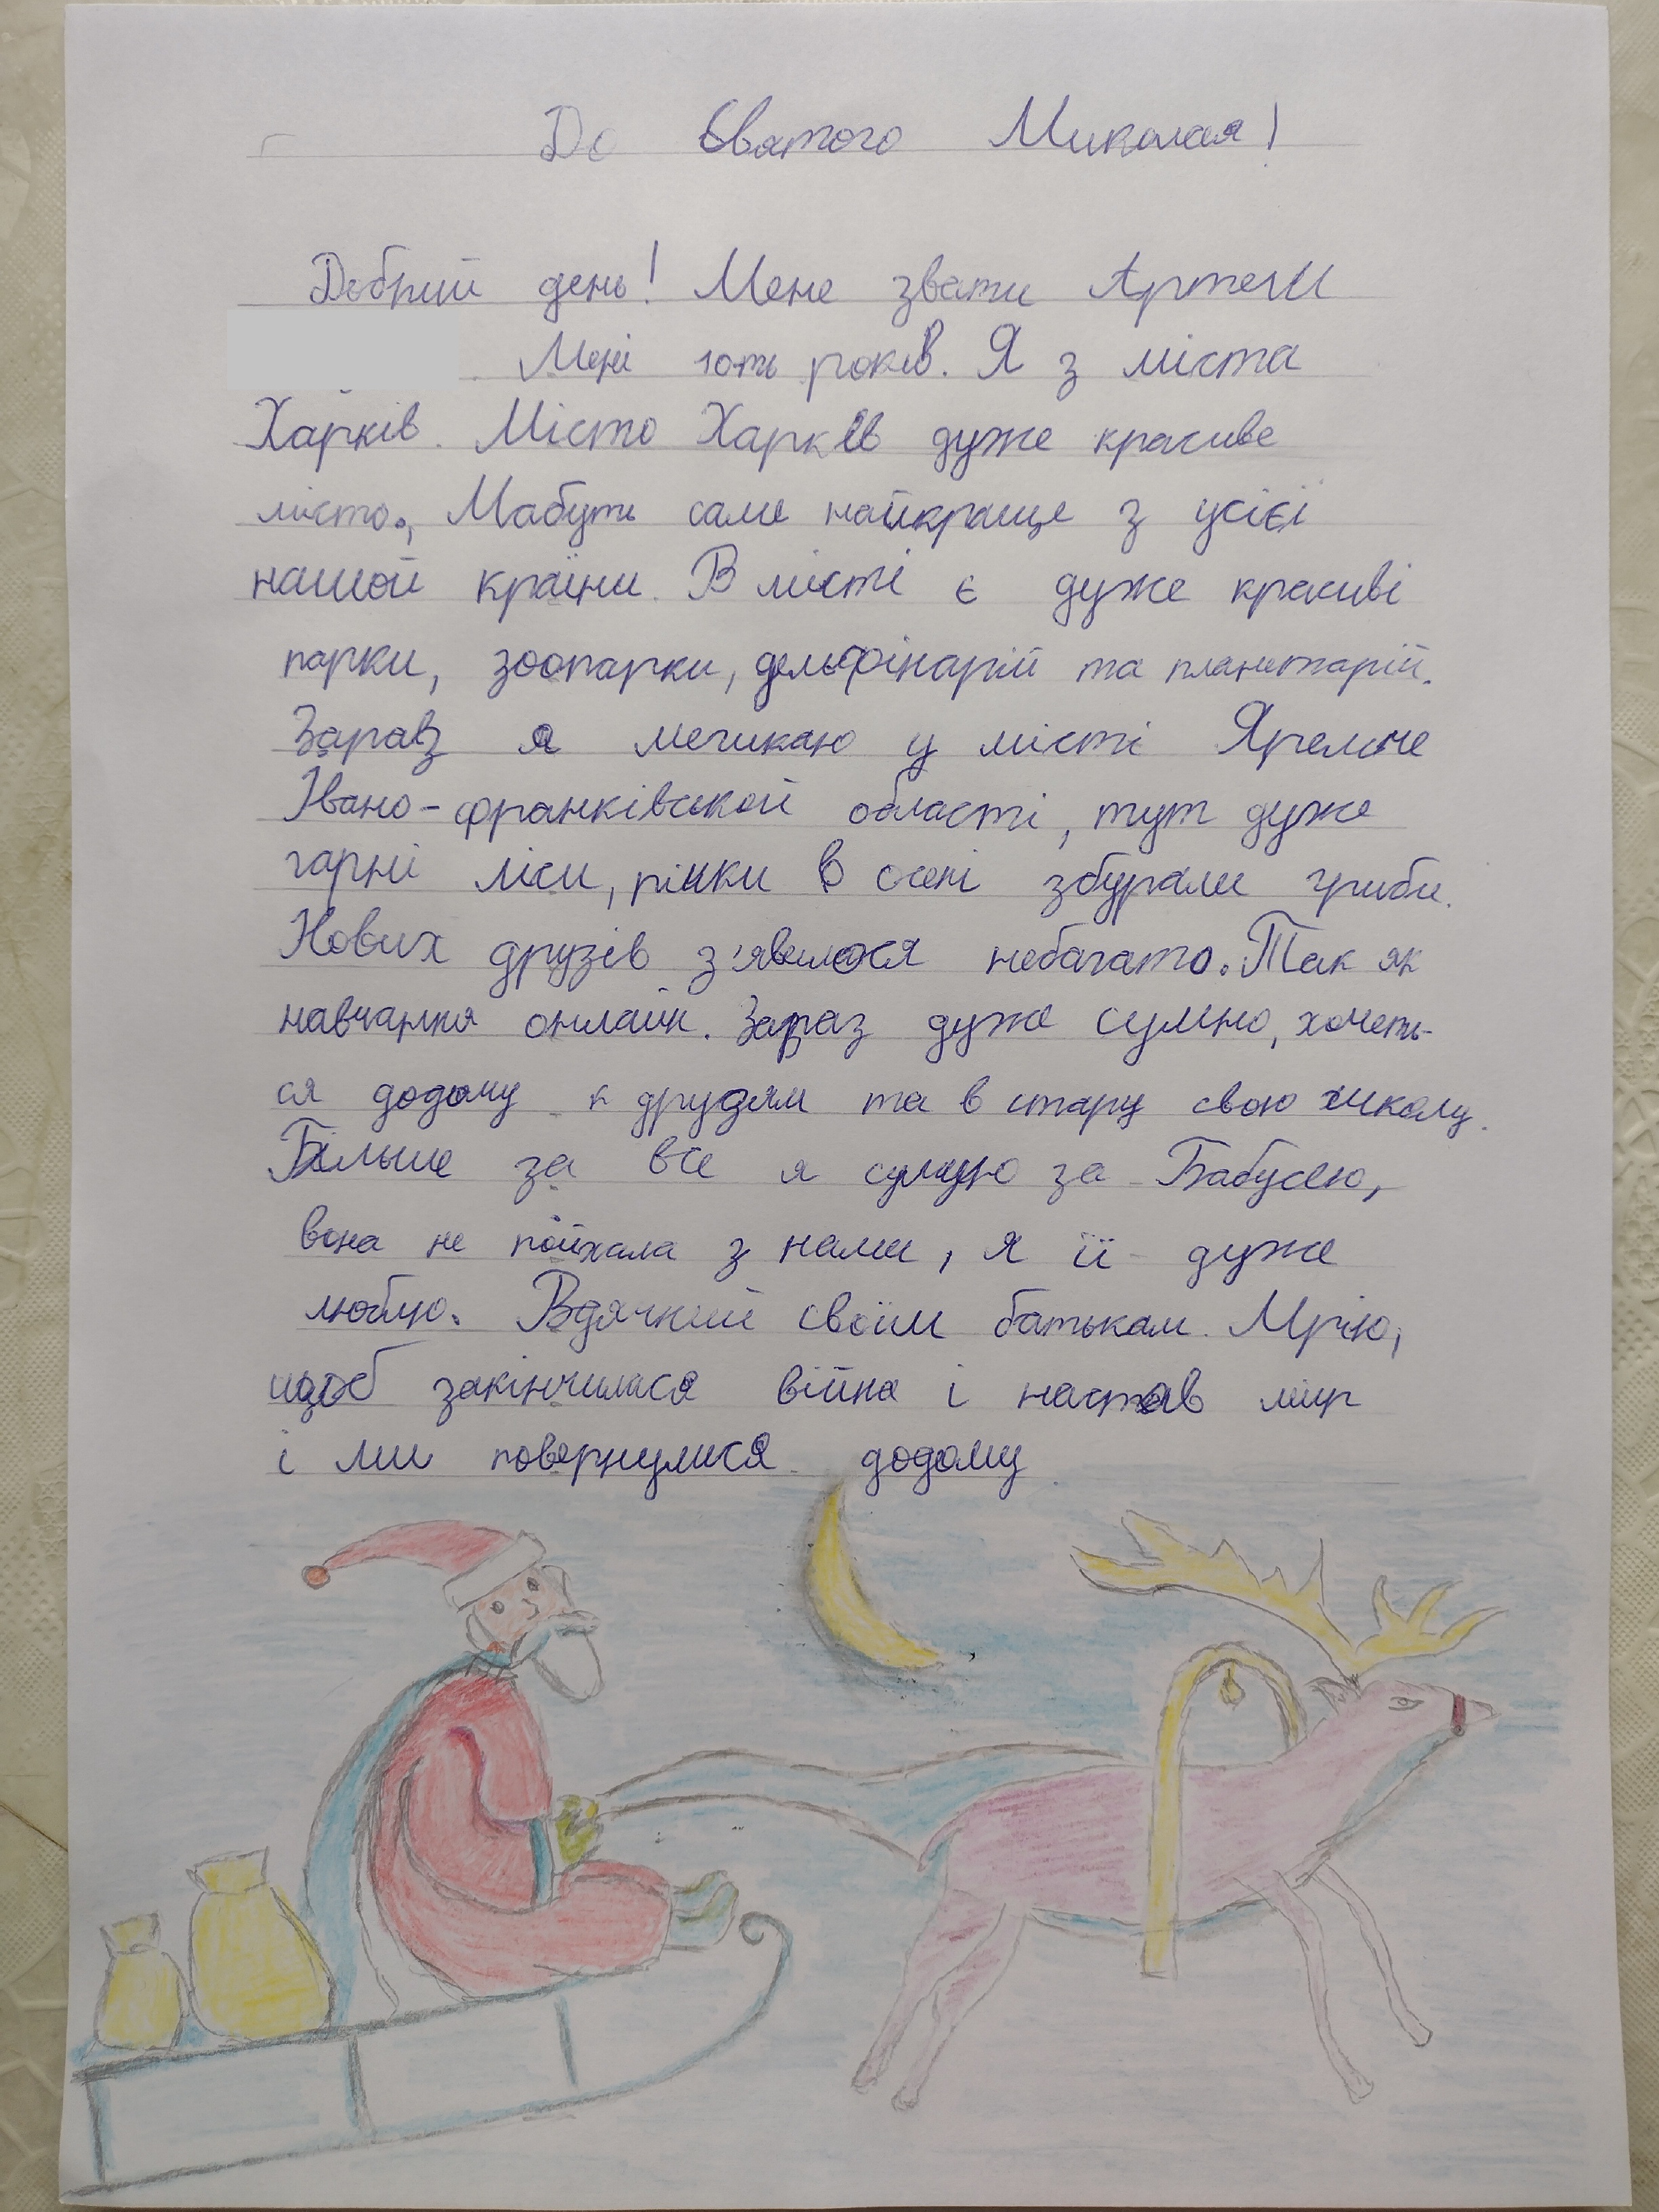 До Святого Миколая!
Добрий день! Мене звати Артем
Мені 10ть років. Я з міста
Харків. Місто Харків дуже красиве
місто., Мабуть саме найкраще з усієї
нашой країни. В місті є дуже красиві
парки, зоопарки, дельфінарій та планетарій.
Зараз я мешкаю у місті Яремче
Івано-франківської області, тут дуже
гарні ліси, рінки в осені збурали гриби.
Нових друзів з'явилося небагато. Так як
навчання онлайн. Зараз дуже сумно, хочеть-
ся додому к друдям та в стару свою школу.
Більше за все я сумую за Бабусею,
вона не поїхала з нами, я її дуже
люблю. Вдячний своїм батькам. Мрію,
щоб закінчилася війна і настав мир
і ми повернулися додому